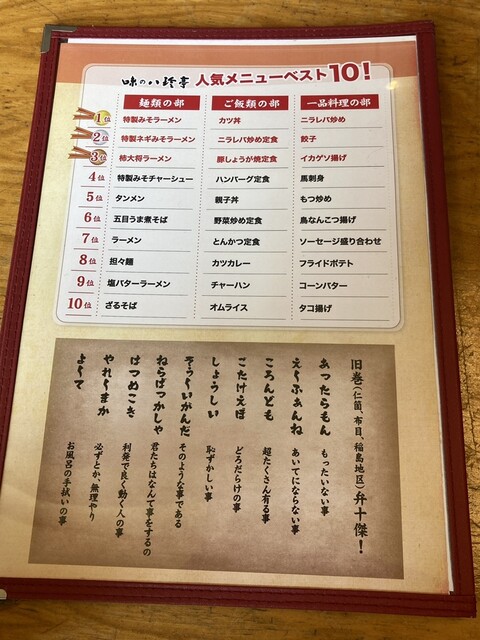 味の八珍亭 人気メニューベスト10!
麺類の部 ご飯類の部 一品料理の部
1位 特製みそラーメン カツ丼 ニラレバ炒め
2位 特製ネギみそラーメン ニラレバ炒め定食 餃子
3位 柿大将ラーメン 豚しょうが焼定食 イカゲソ揚げ
4位 特製みそチャーシュー ハンバーグ定食 馬刺身
5位 タンメン 親子丼 もつ炒め
6位 五目うま煮そば 野菜炒め定食 鳥なんこつ揚げ
7位 ラーメン とんかつ定食 ソーセージ盛り合わせ
8位 担々麺 カツカレー フライドポテト
9位 塩バターラーメン チャーハン コーンバター
10位 ざるそば オムライス タコ揚げ
旧巻(仁箇、布目、稲島地区)弁十傑!
あったらもん もったいない事
え〜ふぁんね あいてにならない事
ころんども 超たくさん有る事
こたけえぼ どろだらけの事
しょうしい 恥ずかしい事
そう〜いがんだ そのような事である
ねらばっかしゃ 君たちはなんて事をするの
はつめこき 利発で良く動く人の事
やれ〜まか 必ずとか、無理やり
よ〜て お風呂の手拭いの事